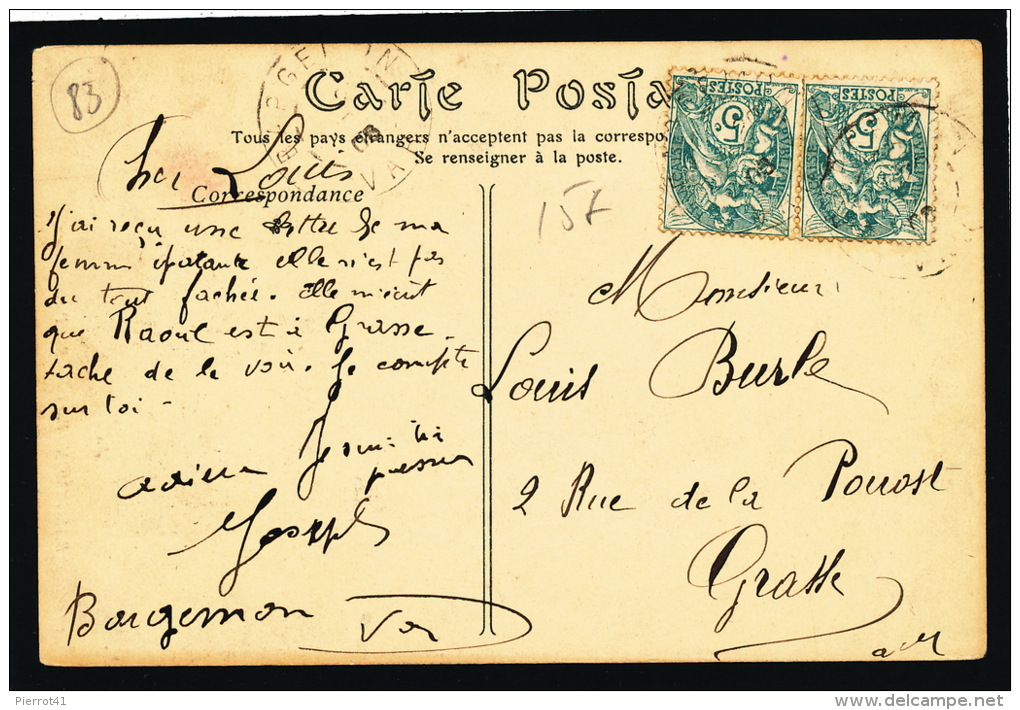 83
BARGEMON
VAR
08
Carte Posta
Tous les pays étrangers n'acceptent pas la correspo
Se renseigner à la poste.
Correspondance
Cher Louis
J'ai reçu une lettre de ma
femme épatante elle n'est pas
du tout fachée. Elle m'écrit
que Raoul est à Grasse
tache de le voir. Je compte
sur toi -
adieu Je suis très
pressé
Joseph
Bargemon
Var
POSTES
5c
POSTES
5c
15F
Monsieur
Louis Burle
2 Rue de la Pouost
Grasse
a M
Pierrot41
www.delcampe.net